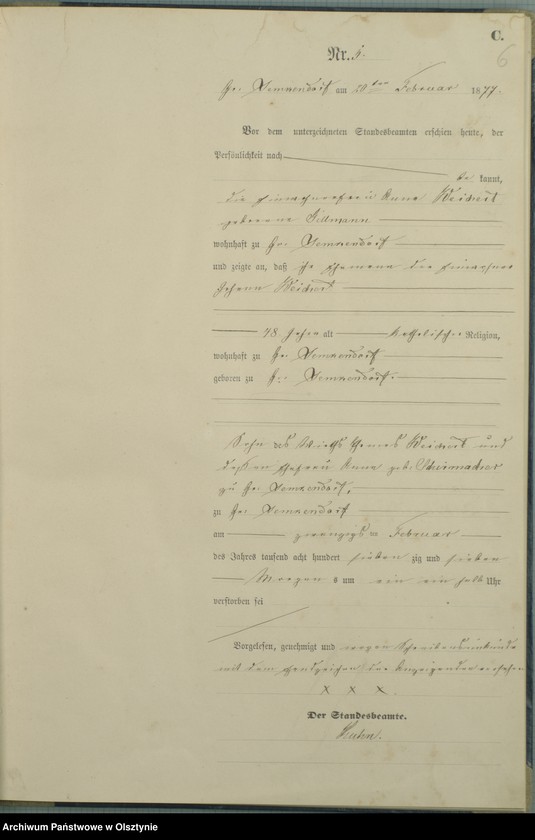 C.
6
Nr. 5.
Gr. Lemkendorf am 20ten Februar 1877.
Vor dem unterzeichneten Standesbeamten erschien heute, der
Persönlichkeit nach
be kannt,
die Einwohnerfrau Anna Weichert
geborene Gillmann
wohnhaft zu Gr. Lemkendorf
und zeigte an, daß ihr Ehemann der Einwohner
Johann Weichert
48 Jahr alt katholischer Religion,
wohnhaft zu Gr. Lemkendorf
geboren zu Gr. Lemkendorf.
Sohn des Wirths Weichert und
dessen Ehefrau Anna geb. Schirmacher
zu Gr. Lemkendorf,
zu Gr. Lemkendorf
am zwanzigsten Februar
des Jahres tausend acht hundert sieben zig und sieben
Morgen s um ein ein halb Uhr
verstorben sei
Vorgelesen, genehmigt und wegen Schreibensunkunde
mit dem Handzeichen der Anzeigenden versehen
x x x.
Der Standesbeamte.
Archiwum Państwowe w Olsztynie